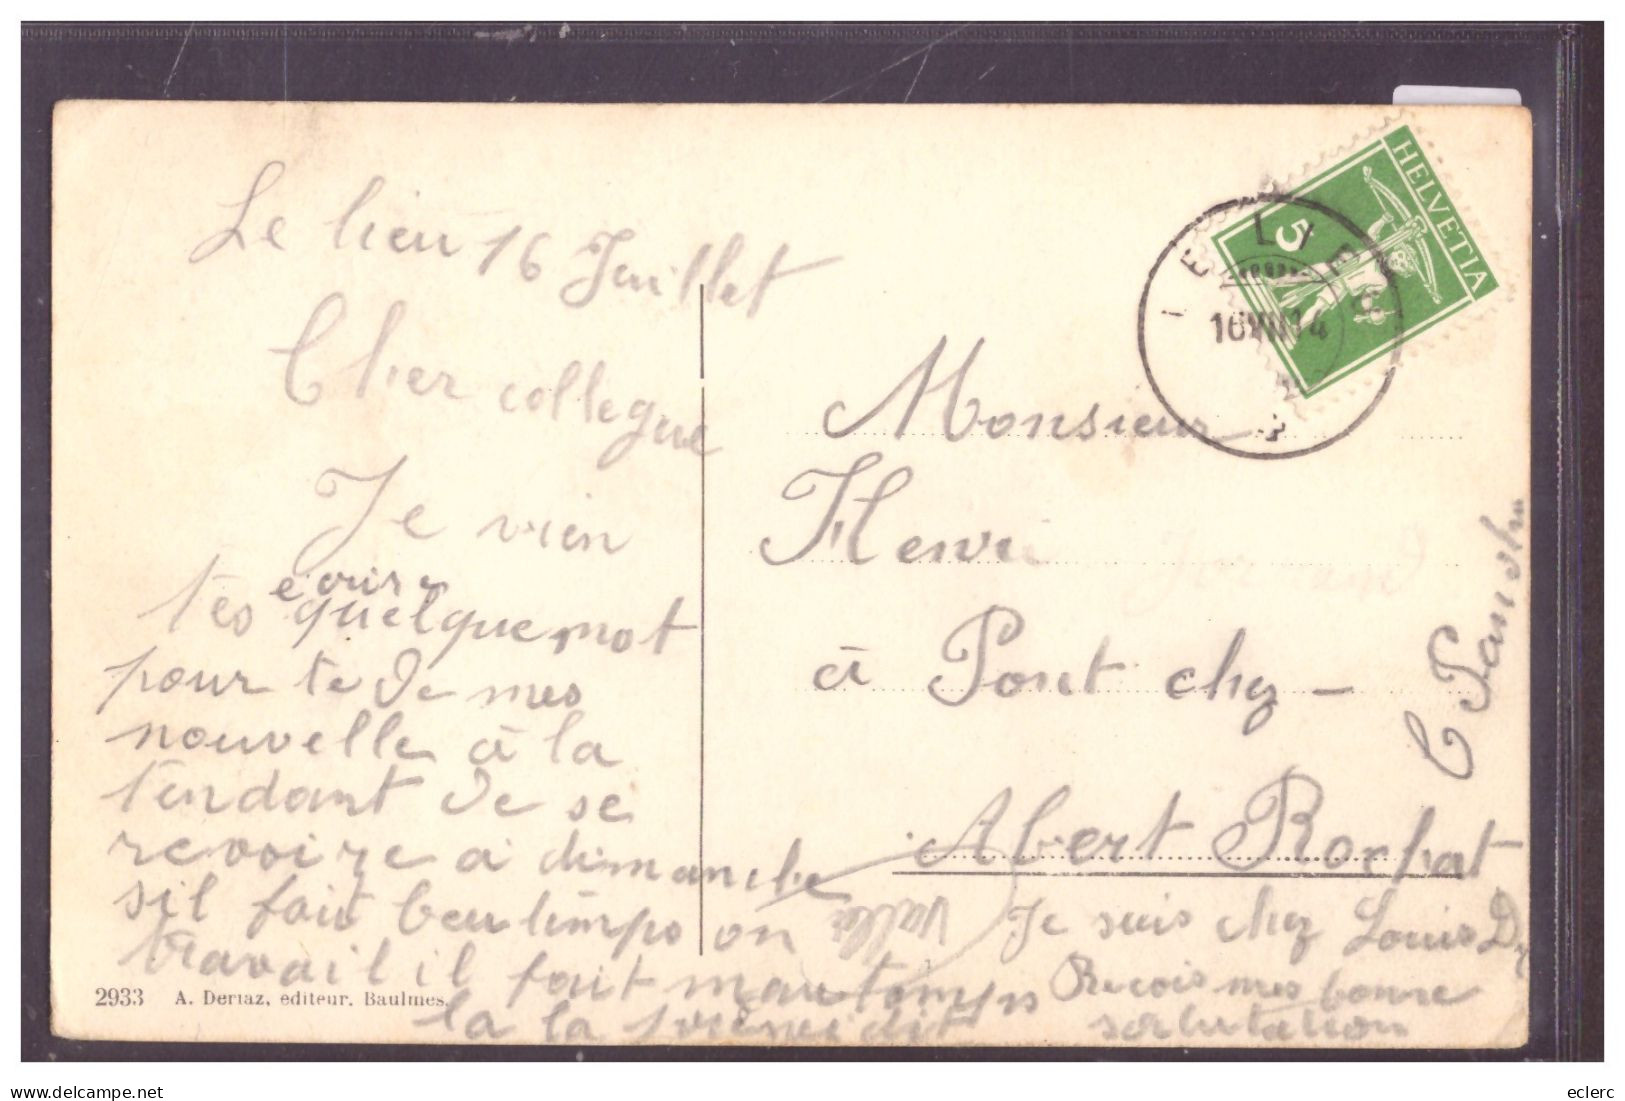 Le lieu 16 Juillet
Cher collegue
Je vien
tes ecrire quelque mot
pour te de mes
nouvelle à la
tendant de se
revoire a dimanche
sil fait beu temps on
travail il fait mau temps
la la
HELVETIA
5
LE LIEU
16 VII 14
Monsieur
Henri
à Pont chez -
Abert Rochat
Je suis chez Louis
Recois mes bonne
salutation
2933 A. Deriaz, editeur. Baulmes.
eclerc